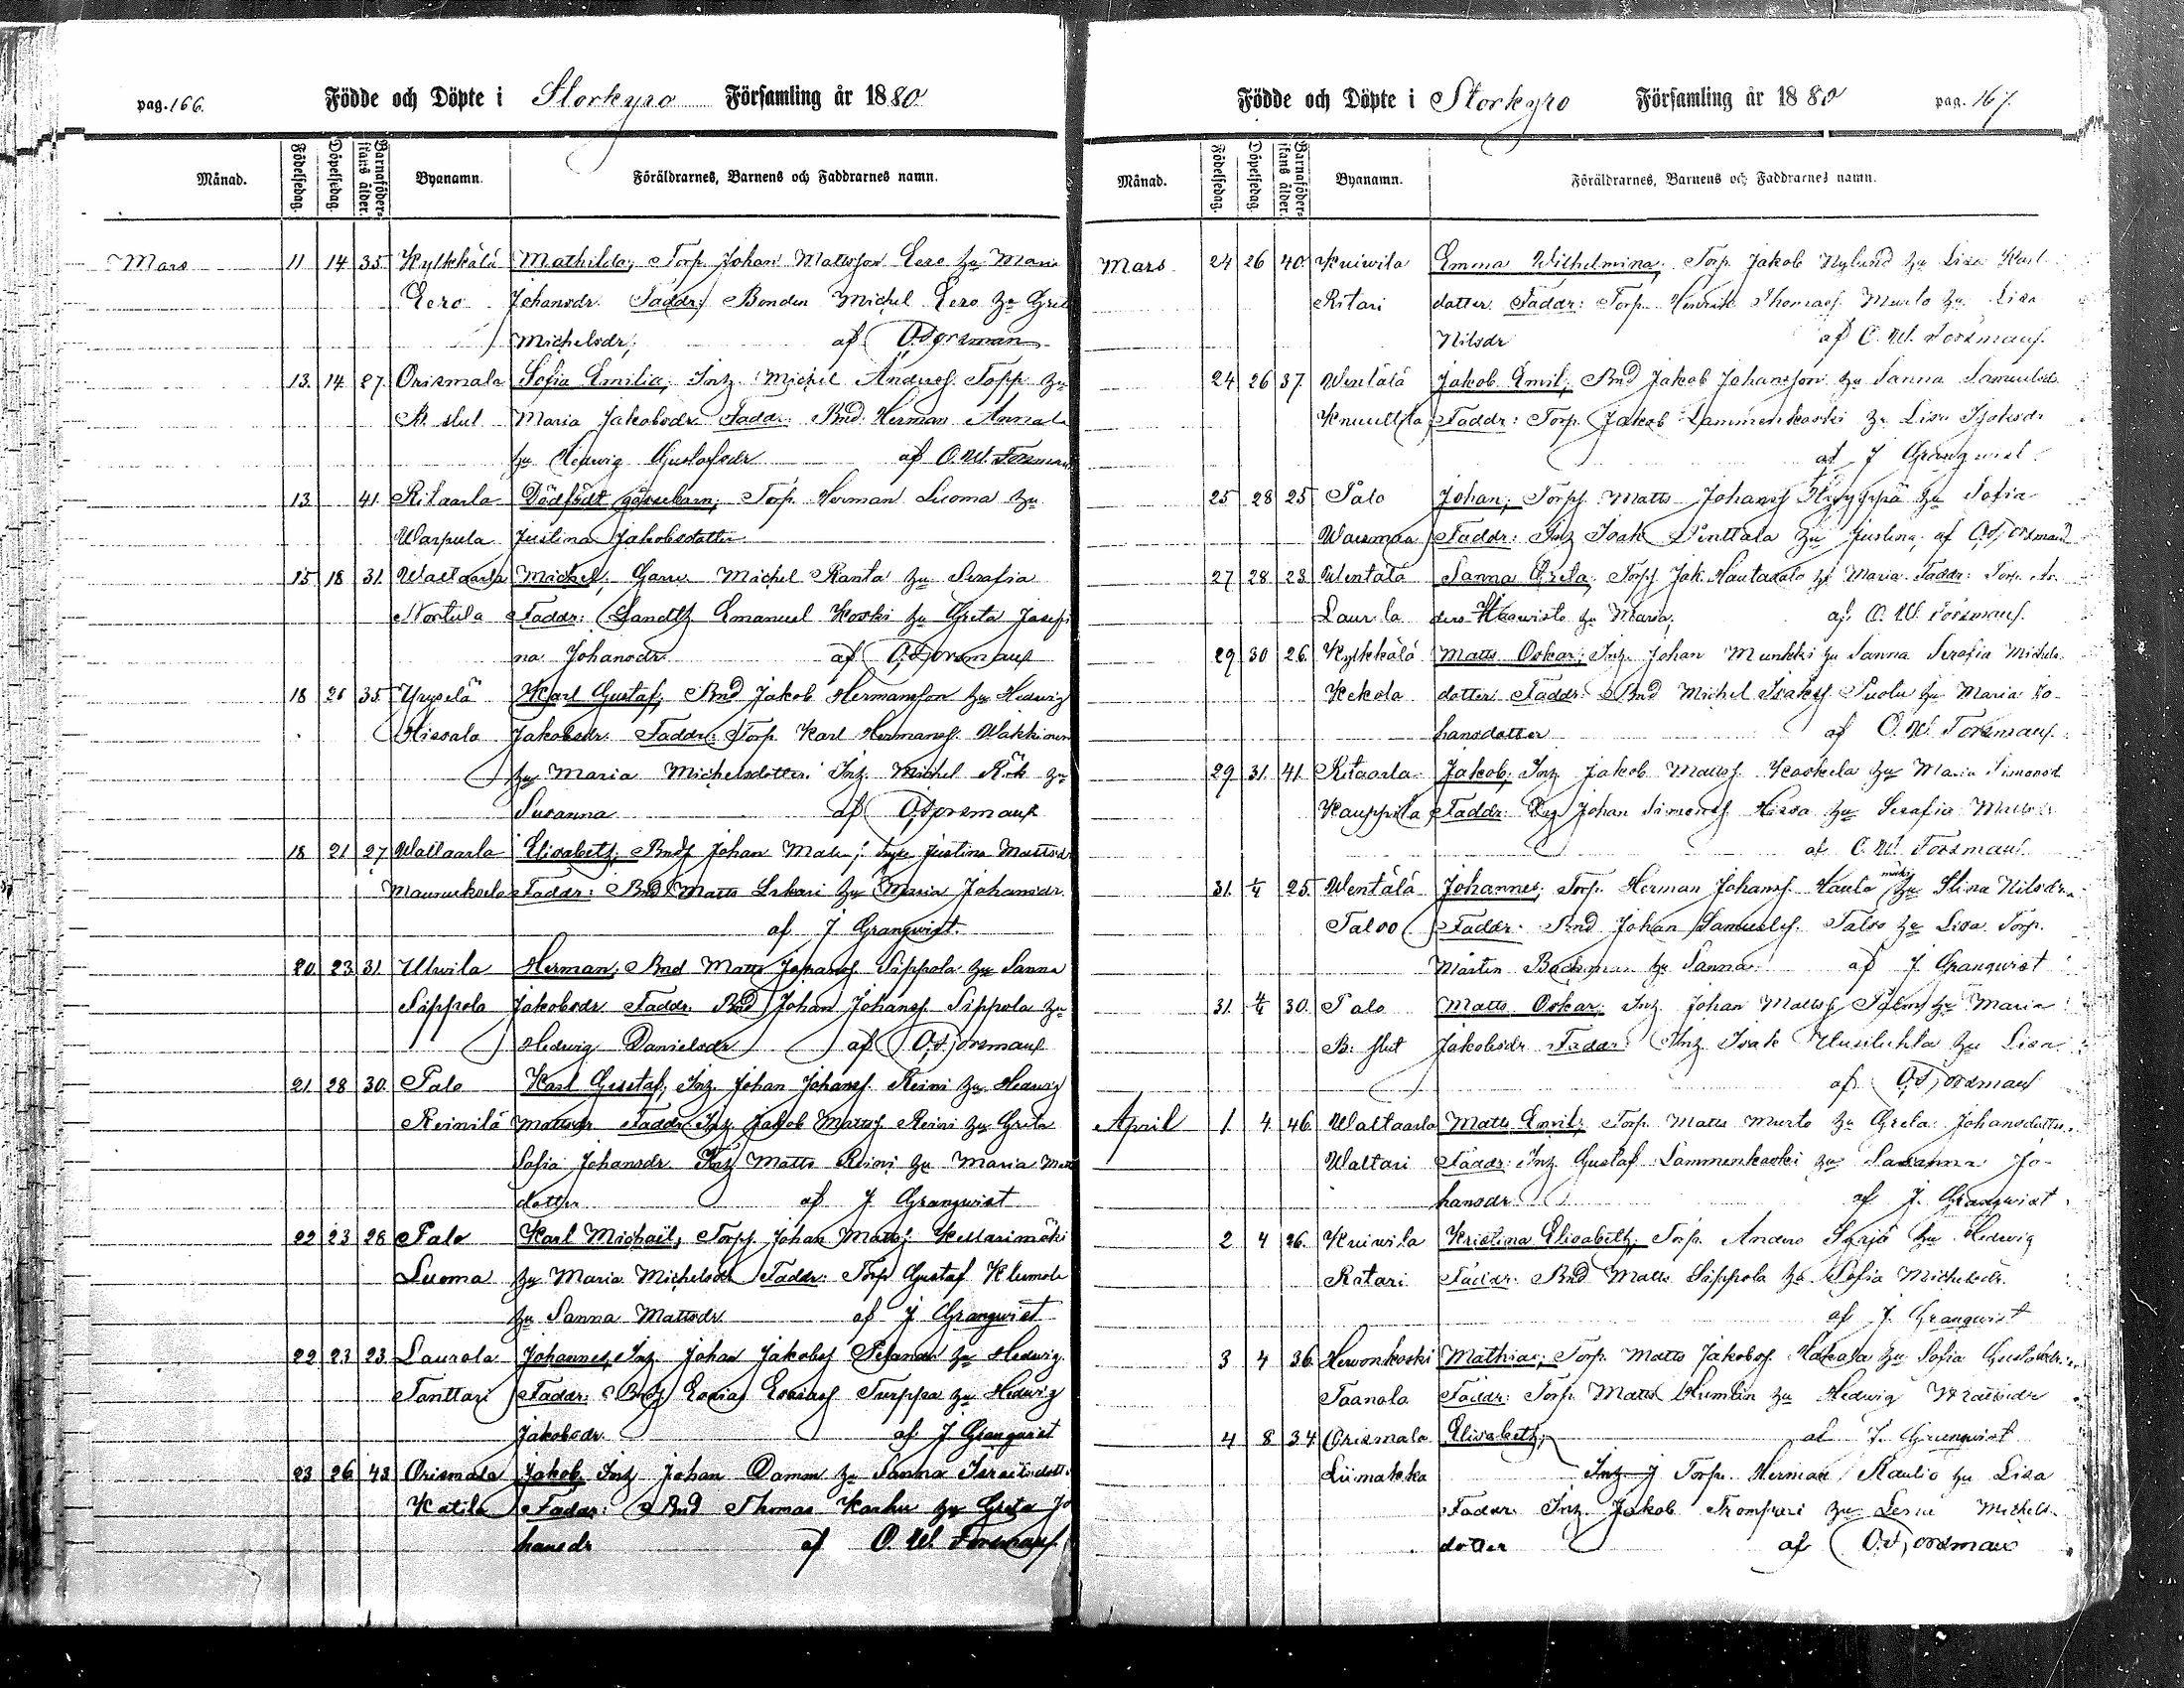 pag. 166.
Födde och Döpte i Storkyro Församling år 1880
Månad. Födelsedag. Döpelsedag. Barnaföderskans ålder. Byanamn. Föräldrarnes, Barnens och Faddrarnes namn.
Mars 11 14 35 Kylkkälä Mathilda; Torp. Johan Mattsson Eero hu Maria
Eero Johansdr. Faddr; Bonden Michel Eero hu Greta
Michelsdr; af O. Forsman
13. 14 27. Orismala Sofia Emilia; Inh. Michel Andersf. Topp hu
B. slut Maria Jakobsdr Faddr: Bnd. Herman Annala
hu Hedwig Gustafsdr af O. W. Forsman
13. 41. Ritaarla Dödfödt gossebarn; Torp. Herman Luoma hu
Warpula Justina Jakobsdotter
15 18 31. Waltaarla Michel; Garv. Michel Ranta hu Serafia
Nortula Faddr: Handtl Emanuel Koski hu Greta Josefi
na Johansdr af O. Forsman
18 21 35. Yryselä Karl Gustaf; Bnd Jakob Hermansson hu Hedwig
Hissala Jakobsdr. Faddr: Torp Karl Hermansf. Wakkinen
hu Maria Michelsdotter. Inh. Michel Rök hu
Susanna af O. Forsman
18 21 27 Waltaarla Elisabeth; Bndf Johan Justina Mattsdr
Maunuksela Faddr: Bnd Matts Lakari hu Maria Johansdr.
af J Granqvist.
20 23 31 Ulwila Herman; Bnd Matts Johansf. Sippola hu Sanna
Sippola Jakobsdr Faddr. Bnd Johan Johansf. Sippola hu
Hedwig Danielsdr af O. Forsman
21. 28 30. Palo Karl Gustaf; Inh. Johan Johansf. Reini hu Hedwig
Reinilä Mattsdr Faddr: Inh. Jakob Mattsf. Reini hu Greta
Sofia Johansdr. Inh Matts Reini hu Maria Matts
dotter af J Granqvist
22 23 28 Palo Karl Michaël; Torpf. Johan Mattsf. Kellarimäki
Luoma hu Maria Michelsdr Faddr: Torp Gustaf Klemola
hu Sanna Mattsdr af J Granqvist
22 23 23 Laurola Johannes; Inh. Johan Jakobsf Pelanen hu Hedwig
Tanttari Faddr: Bndf Esaias Esaiasf Turppa hu Hedwig
Jakobsdr. af J Granqvist
23 26 43 Orismala Jakob; Inh Johan Damm hu Sanna Israelsdott.
Katila Faddr: Bnd Thomas Karhu hu Greta Jo
hansdr af O. W. Forsman
pag. 167.
Födde och Döpte i Storkyro Församling år 1880
Månad. Födelsedag. Döpelsedag. Barnaföderskans ålder. Byanamn. Föräldrarnes, Barnens och Faddrarnes namn.
Mars 24 26 40. Kuiwila Emma Wilhelmina; Torp. Jakob Nylund hu Lisa Karl
Ritari dotter Faddr: Torp. Hinrik Thomasf. Murto hu Lisa
Nilsdr af O. W. Forsman.
24 26 37. Wentälä Jakob Emil; Bnd Jakob Johansson hu Sanna Samuelsdr
Knuuttila Faddr: Torp. Jakob Lammenkoski hu Lisa
af J Granqvist.
25 28 25 Palo Johan; Torpf. Matts Johansf hu Sofia
Waismaa Faddr: Inh Isak Penttala hu Justina; af O. Forsman
27 28 23 Wentälä Sanna Greta; Torpf Jak. Hautasalo hu Maria. Faddr: Torp. An-
Laurila ders Kauristo hu Maria; af O. W. Forsman.
29 30 26. Kylkkälä Matts Oskar; Inh. Johan Munkki hu Sanna Serafia Michels-
Kekola dotter Faddr: Bnd Michel Isaksf Puolu hu Maria Jo-
hansdotter af O. W. Forsman.
29 31. 41. Ritaarla Jakob; Inh Jakob Mattsf. Kaskela hu Maria Simonsd
Kauppila Faddr: Johan Simonsf Hissa hu Serafia Mattsdr
af O. W. Forsman
31. 1/4 25. Wentälä Johannes; Torp. Herman Johansf. Hautamäki hu Stina Nilsdr
Taloo Faddr: Bnd Johan Samuelsf. Taloo hu Lisa. Torp.
Mårten Backman hu Sanna. af J. Granqvist
31. 4/4 30. Palo Matts Oskar; Inh. Johan Mattsf Palm hu Maria
B. slut Jakobsdr Faddr: Inh Isak Uusiluhta hu Lisa
af O. Forsman
April 1. 4 46. Waltaarla Matts Emil; Torp. Matts Murto hu Greta Johansdotter.
Waltari Faddr: Inh. Gustaf Lammenkoski hu Susanna Jo-
hansdr af J. Granqvist
2 4 26. Kuiwila Kristina Elisabeth; Torp. Anders Syrjä hu Hedwig
Ritari Faddr: Bnd Matts Sippola hu Sofia Michelsdr.
af J. Granqvist
3 4 36. Hewonkoski Mathias; Torp. Matts Jakobsf. Hakala hu Sofia Gustafsdr.
Taanala Faddr: Torp. Matts Humlin hu Hedwig Mattsdr
af J. Granqvist
4 8 34 Orismala Elisabeth;
Liimakka Inh J Torp. Herman Rautio hu Lisa
Faddr. Inh. Jakob Trompari hu Lena Michels-
dotter af O. Forsman